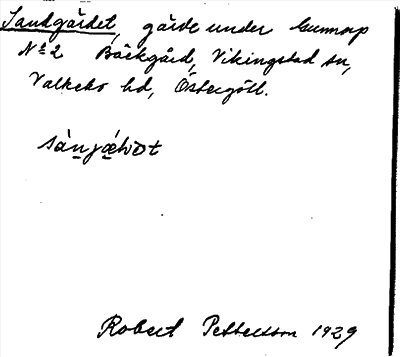 Sandgärdet, gärde under Gunnorp
No 2 Bäckgård, Vikingstad sn,
Valkebo hd, Östergötl.
Robert Pettersson 1929